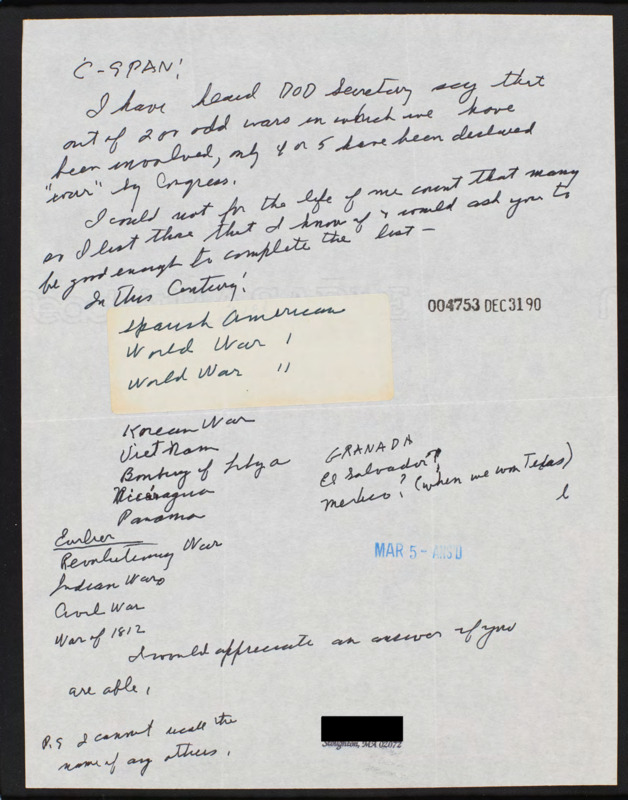 C-SPAN!
I have heard DOD Secretary say that
out of 200 odd wars in which we have
been involved, only 4 or 5 have been declared
"war" by Congress.
I could not for the life of me count that many
so I list those that I know of & would ask you to
be good enough to complete the list —
In this Century!
004753 DEC 31 90
Spanish American
World War I
World War II
Korean War
Viet Nam
Bombing of Libya
Nicaragua
Panama
GRANADA
El Salvador?
Mexico? (when we won Texas)
Earlier
Revolutionary War
Indian Wars
Civil War
War of 1812
MAR 5 - ANS'D
I would appreciate an answer if you
are able,
P.S I cannot recall the
name of any others.
Stoughton, MA 02072